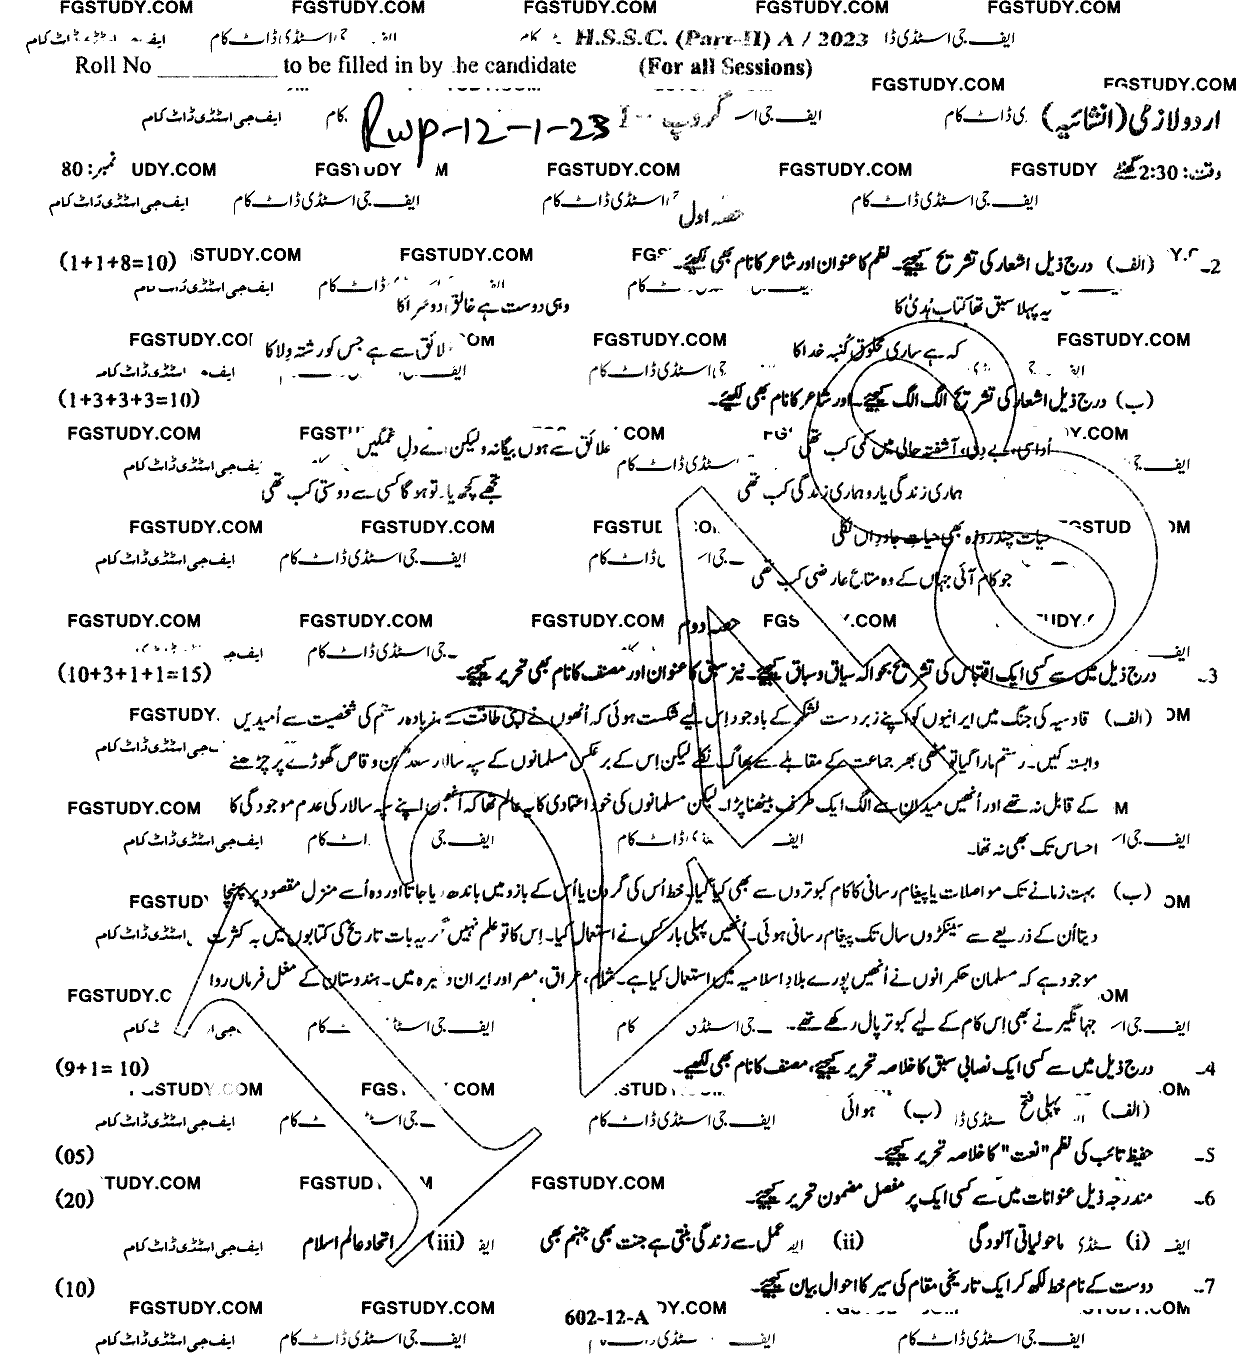 FGSTUDY.COM FGSTUDY.COM FGSTUDY.COM FGSTUDY.COM FGSTUDY.COM
H.S.S.C. (Part-II) A / 2023
Roll No ____________ to be filled in by the candidate (For all Sessions)
اردو لازمی (انشائیہ) گروپ -I Rwp-12-1-23
وقت: 2:30 گھنٹے نمبر: 80
حصہ اول
2۔ (الف) درج ذیل اشعار کی تشریح کیجیے۔ نظم کا عنوان اور شاعر کا نام بھی لکھیے۔ (1+1+8=10)
یہ پہلا سبق تھا کتاب ہُدیٰ کا وہی دوست ہے خالق دوسرا کا
کہ ہے ساری مخلوق کُنبہ خدا کا خلائق سے ہے جس کو رشتہ وِلا کا
(ب) درج ذیل اشعار کی تشریح الگ الگ کیجیے۔ اور شاعر کا نام بھی لکھیے۔ (1+3+3+3=10)
اُداسی، بے دلی، آشفتہ حالی میں کمی کب تھی علائق سے ہوں بیگانہ ولیکن اے دلِ غمگیں
ہماری زندگی یارو ہماری زندگی کب تھی تجھے کچھ یاد تو ہو گا کسی سے دوستی کب تھی
حیات چند روزہ بھی حیاتِ جاوداں نکلی
جو کام آئی جہاں کے وہ متاع عارضی کب تھی
حصہ دوم
3۔ درج ذیل میں سے کسی ایک اقتباس کی تشریح بحوالہ سیاق و سباق کیجیے۔ نیز سبق کا عنوان اور مصنف کا نام بھی تحریر کیجیے۔ (10+3+1+1=15)
(الف) قادسیہ کی جنگ میں ایرانیوں کو اپنے زبردست لشکر کے باوجود اس لیے شکست ہوئی کہ اُنھوں نے اپنی طاقت سے زیادہ رستم کی شخصیت سے اُمیدیں
وابستہ کیں۔ رستم مارا گیا تو مٹھی بھر جماعت کے مقابلے سے بھاگ نکلے لیکن اِس کے برعکس مسلمانوں کے سپہ سالار سعد بن وقاص گھوڑے پر چڑھنے
کے قابل نہ تھے اور اُنھیں میدان سے الگ ایک طرف بیٹھنا پڑا۔ لیکن مسلمانوں کی خود اعتمادی کا یہ عالم تھا کہ اُنھیں اپنے سپہ سالار کی عدم موجودگی کا
احساس تک بھی نہ تھا۔
(ب) بہت زمانے تک مواصلات یا پیغام رسانی کا کام کبوتروں سے بھی لیا گیا۔ خط اُس کی گردن یا اُس کے بازو میں باندھ دیا جاتا اور وہ اُسے منزل مقصود پر پہنچا
دیتا اُن کے ذریعے سے سینکڑوں سال تک پیغام رسانی ہوئی۔ اُنھیں پہلی بار کس نے استعمال کیا۔ اِس کا تو علم نہیں مگر یہ بات تاریخ کی کتابوں میں بہ کثرت
موجود ہے کہ مسلمان حکمرانوں نے اُنھیں پورے بلادِ اسلامیہ میں استعمال کیا ہے۔ شام، عراق، مصر اور ایران وغیرہ میں۔ ہندوستان کے مغل فرماں روا
جہانگیر نے بھی اِس کام کے لیے کبوتر پال رکھے تھے۔
4۔ درج ذیل میں سے کسی ایک نصابی سبق کا خلاصہ تحریر کیجیے، مصنف کا نام بھی لکھیے۔ (9+1= 10)
(الف) پہلی فتح (ب) ہوائی
5۔ حفیظ تائب کی نظم "نعت" کا خلاصہ تحریر کیجیے۔ (05)
6۔ مندرجہ ذیل عنوانات میں سے کسی ایک پر مفصل مضمون تحریر کیجیے۔ (20)
(i) ماحولیاتی آلودگی (ii) عمل سے زندگی بنتی ہے جنت بھی جہنم بھی (iii) اتحاد عالم اسلام
7۔ دوست کے نام خط لکھ کر ایک تاریخی مقام کی سیر کا احوال بیان کیجیے۔ (10)
602-12-A